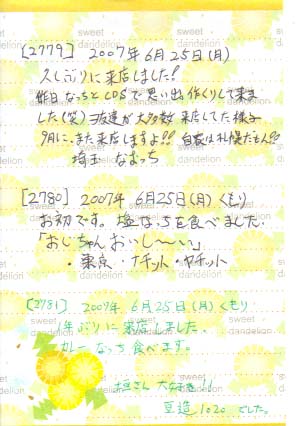 [2779] 2007年6月25日(月)
久しぶりに来店しました!!
昨日なっちとCDSで思い出作りして来ま
した(笑) 友達が大多数来店してた様子
9月に、また来店しますよ!! 自家は札幌だもん!!
埼玉 なまっち
[2780] 2007年 6月25日(月) くもり
お初です。塩なっちを食べました.
「おじちゃんおいし〜い」
・東京・ナチット・ヤチット
[2781] 2007年 6月25日(月) くもり
1年ぶりに来店しました、
カレーなっち食べます。
大好き!!
豆造 1020 でした。
sweet
dandelion